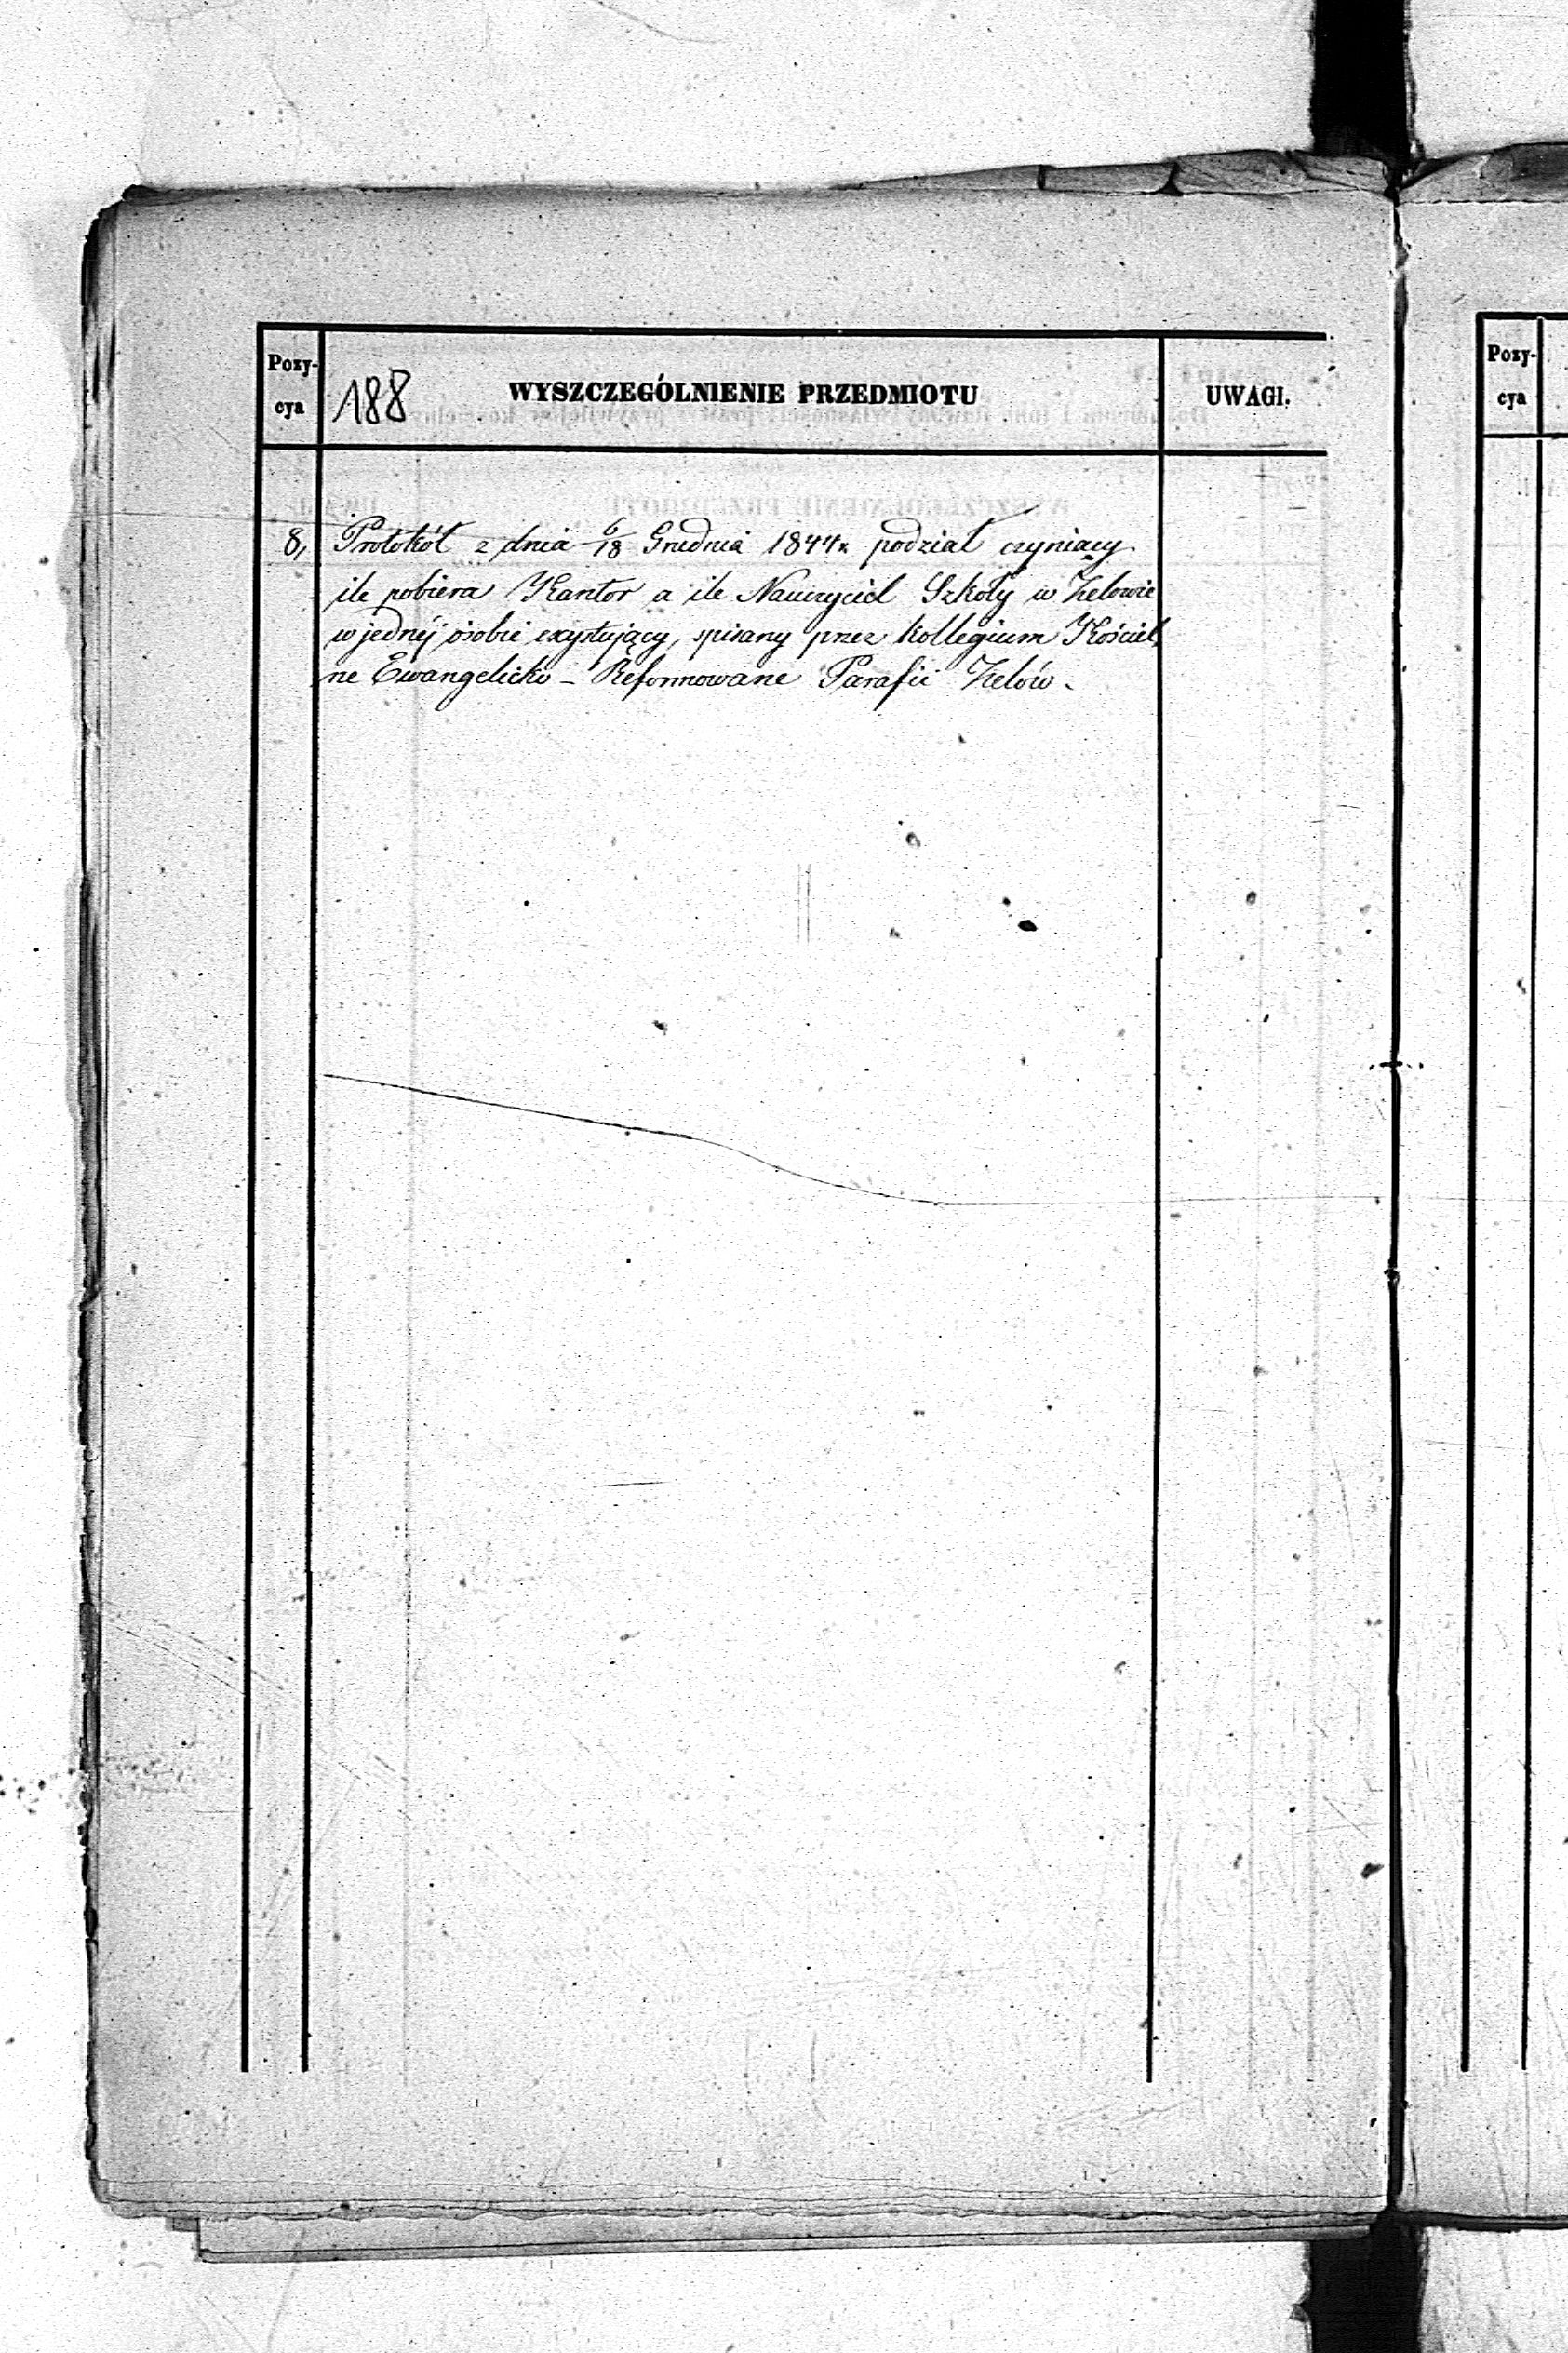 Pozy-
cya
188
WYSZCZEGÓLNIENIE PRZEDMIOTU
UWAGI.
8, Protokół z dnia 6/18 Grudnia 1844r. podział czyniący
ile pobiera Kantor a ile Nauczyciel Szkoły w Zelowie
w jednéj osobie exystujący, spisany przez Kollegium Kościel,
ne Ewangelicko - Reformowane Parafii Zelów.
Pozy-
cya